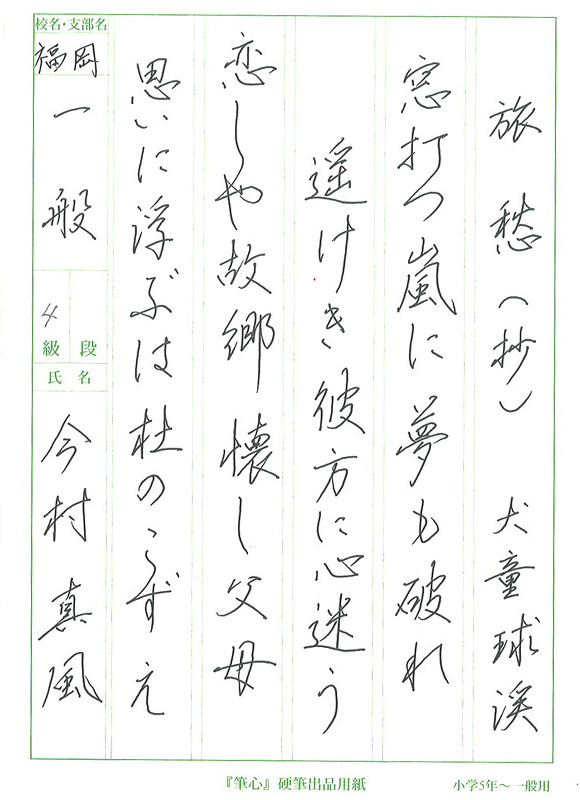 旅愁（抄）　犬童球渓
窓打つ嵐に夢も破れ
遥けき彼方に心迷う
恋しや故郷懐し父母
思いに浮ぶは杜のこずえ
校名・支部名
福岡
一般
4
級 段
氏 名
今村真風
『筆心』硬筆出品用紙
小学5年～一般用